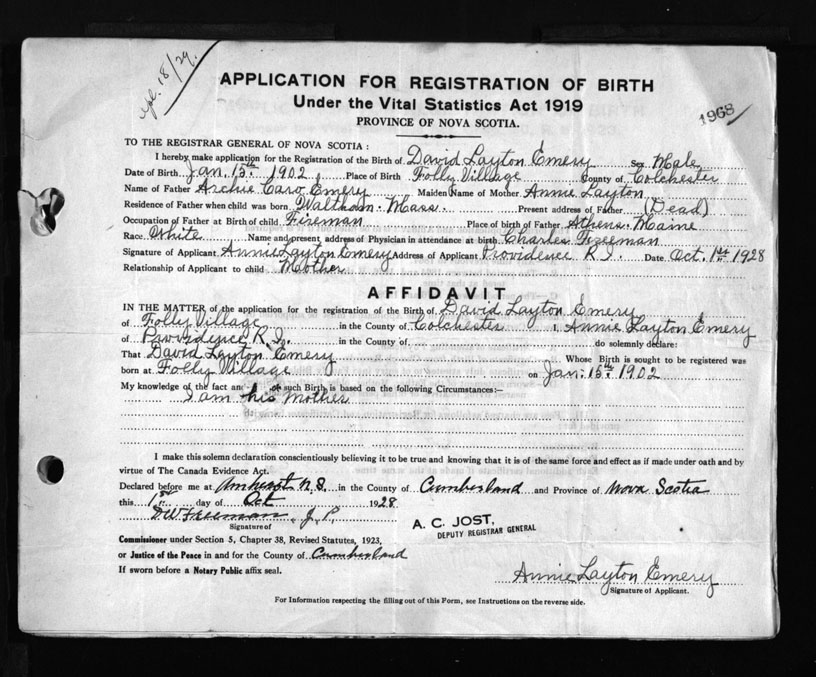 Apl. 18/29.
APPLICATION FOR REGISTRATION OF BIRTH
Under the Vital Statistics Act 1919
PROVINCE OF NOVA SCOTIA.
1968
TO THE REGISTRAR GENERAL OF NOVA SCOTIA :
I hereby make application for the Registration of the Birth of David Layton Emery Sex Male
Date of Birth Jan. 15th 1902 Place of Birth Folly Village County of Colchester
Name of Father Archie Caro Emery Maiden Name of Mother Annie Layton
Residence of Father when child was born Waltham. Mass. Present address of Father (Dead)
Occupation of Father at Birth of child Fireman Place of birth of Father Athens. Maine
Race White Name and present address of Physician in attendance at birth Charles Freeman
Signature of Applicant Annie Layton Emery Address of Applicant Providence R.I. Date Oct. 1st 1928
Relationship of Applicant to child Mother
AFFIDAVIT
IN THE MATTER of the application for the registration of the Birth of David Layton Emery
of Folly Village in the County of Colchester I, Annie Layton Emery
of Providence R.I. in the County of do solemnly declare:
That David Layton Emery Whose Birth is sought to be registered was
born at Folly Village on Jan. 15th 1902
My knowledge of the fact an of such Birth is based on the following Circumstances:—
I am his Mother
I make this solemn declaration conscientiously believing it to be true and knowing that it is of the same force and effect as if made under oath and by
virtue of The Canada Evidence Act.
Declared before me at Amherst N.S. in the County of Cumberland and Province of Nova Scotia
this 1st day of Oct 1928
D W Freeman, J.P.
Signature of
A. C. JOST,
DEPUTY REGISTRAR GENERAL
Commissioner under Section 5, Chapter 38, Revised Statutes, 1923,
or Justice of the Peace in and for the County of Cumberland
If sworn before a Notary Public affix seal.
Annie Layton Emery
Signature of Applicant.
For Information respecting the filling out of this Form, see Instructions on the reverse side.